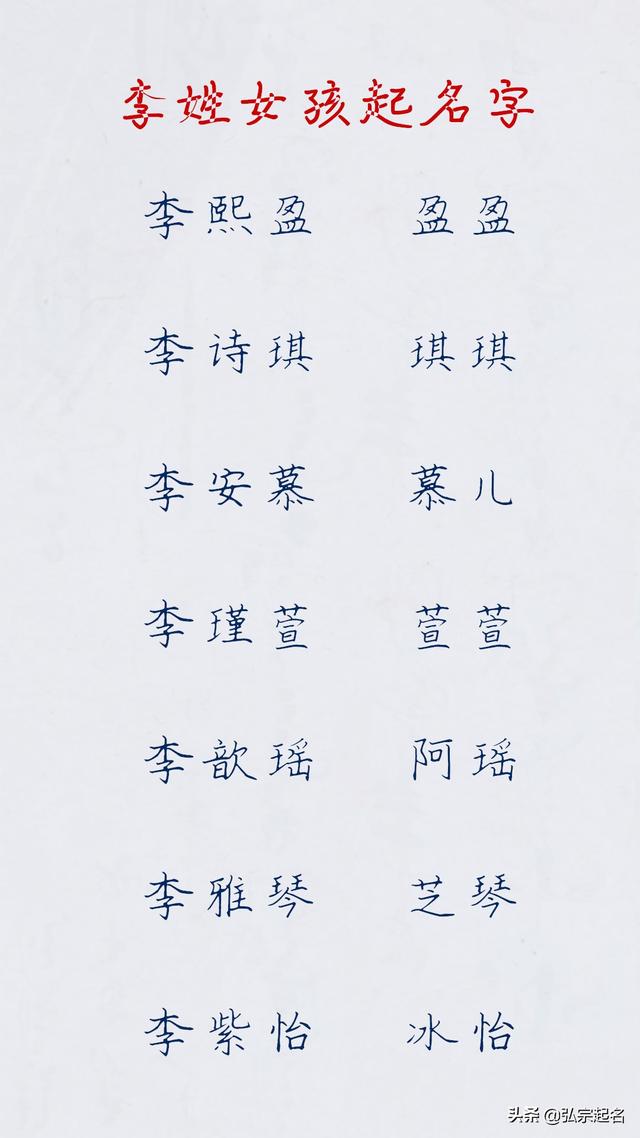 李姓女孩起名字
李熙盈 盈盈
李诗琪 琪琪
李安慕 慕儿
李瑾萱 萱萱
李歆瑶 阿瑶
李雅琴 芝琴
李紫怡 冰怡
头条 @弘宗起名